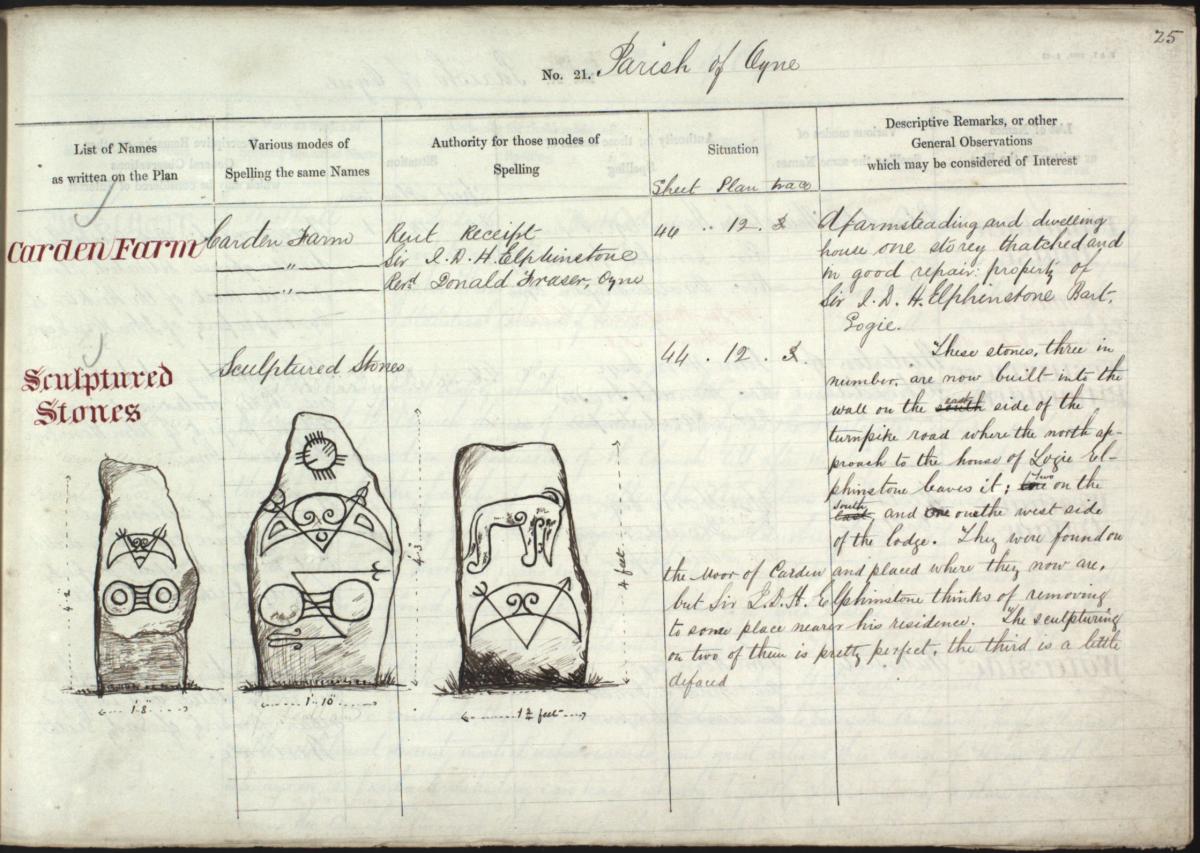 25
No. 21. Parish of Oyne
List of Names
as written on the Plan
Various modes of
Spelling the same Names
Authority for those modes of
Spelling
Situation
Sheet Plan trace
Descriptive Remarks, or other
General Observations
which may be considered of Interest
Carden Farm
Carden Farm
"
"
Rent Receipt
Sir J. D. H. Elphinstone
Revd. Donald Fraser, Oyne
44 . 12 . 2
A farmsteading and dwelling
house one storey thatched and
in good repair: property of
Sir J. D. H. Elphinstone Bart.
Logie.
Sculptured
Stones
Sculptured Stones
44 . 12 . 2
These stones, three in
number, are now built into the
wall on the south east side of the
turnpike road where the north ap-
proach to the house of Logie El-
phinstone leaves it; two on the
east south, and one on the west side
of the lodge. They were found on
the Moor of Carden and placed where they now are,
but Sir J. D. H. Elphinstone thinks of removing
to some place nearer his residence. The sculpturing
on two of them is pretty perfect, the third is a little
defaced
4.2
1'.8"
4.3
1'.10"
4 feet
feet